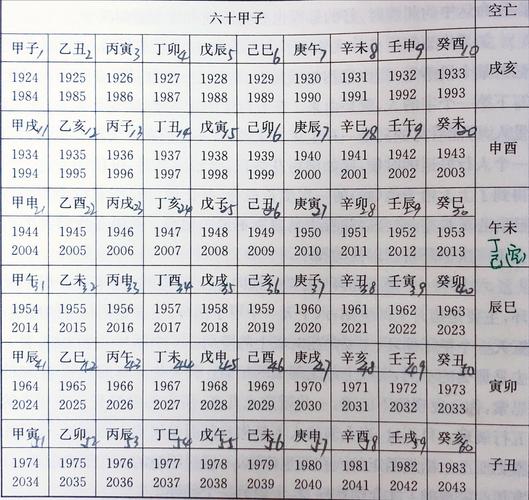 六十甲子 空亡
甲子1 乙丑2 丙寅3 丁卯4 戊辰5 己巳6 庚午7 辛未8 壬申9 癸酉10
1924 1925 1926 1927 1928 1929 1930 1931 1932 1933 戌亥
1984 1985 1986 1987 1988 1989 1990 1991 1992 1993
甲戌11 乙亥12 丙子13 丁丑14 戊寅15 己卯16 庚辰17 辛巳18 壬午19 癸未20
1934 1935 1936 1937 1938 1939 1940 1941 1942 1943 申酉
1994 1995 1996 1997 1998 1999 2000 2001 2002 2003
甲申21 乙酉22 丙戌23 丁亥24 戊子25 己丑26 庚寅27 辛卯28 壬辰29 癸巳30
1944 1945 1946 1947 1948 1949 1950 1951 1952 1953 午未
2004 2005 2006 2007 2008 2009 2010 2011 2012 2013 丁
己
甲午31 乙未32 丙申33 丁酉34 戊戌35 己亥36 庚子37 辛丑38 壬寅39 癸卯40
1954 1955 1956 1957 1958 1959 1960 1961 1962 1963 辰巳
2014 2015 2016 2017 2018 2019 2020 2021 2022 2023
甲辰41 乙巳42 丙午43 丁未44 戊申45 己酉46 庚戌47 辛亥48 壬子49 癸丑50
1964 1965 1966 1967 1968 1969 1970 1971 1972 1973 寅卯
2024 2025 2026 2027 2028 2029 2030 2031 2032 2033
甲寅51 乙卯52 丙辰53 丁巳54 戊午55 己未56 庚申57 辛酉58 壬戌59 癸亥60
1974 1975 1976 1977 1978 1979 1980 1981 1982 1983 子丑
2034 2035 2036 2037 2038 2039 2040 2041 2042 2043